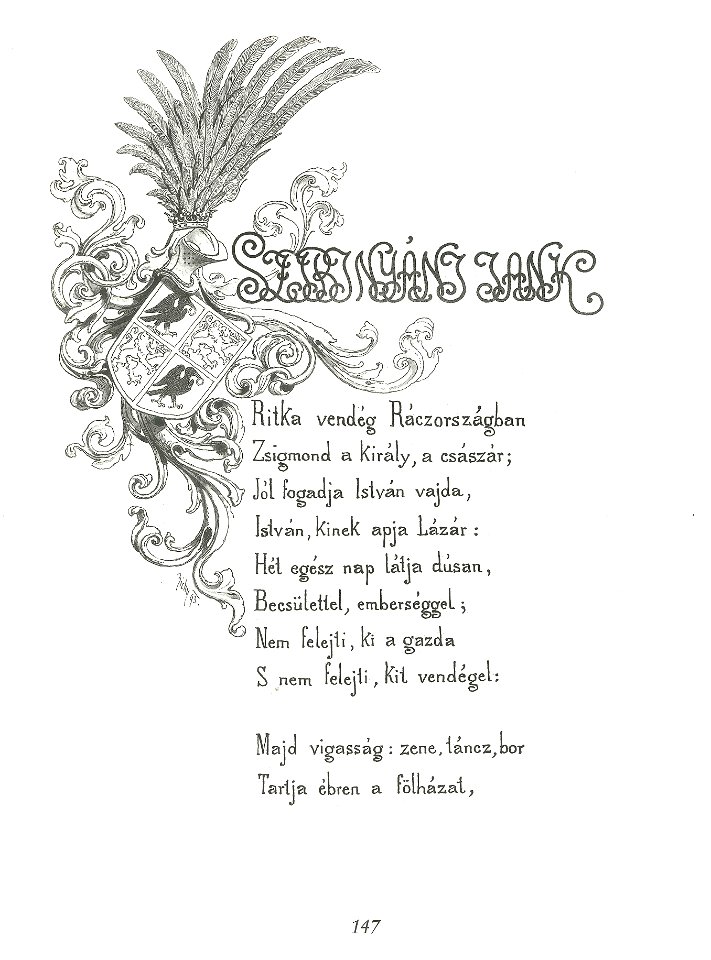 SZIBINYÁNI JANK
Ritka vendég Ráczországban
Zsigmond a király, a császár;
Jól fogadja István vajda,
István, kinek apja Lázár:
Hét egész nap látja dúsan,
Becsülettel, emberséggel;
Nem felejti, ki a gazda
S nem felejti, kit vendégel:
Majd vigasság: zene, táncz, bor
Tartja ébren a fölházat,
147